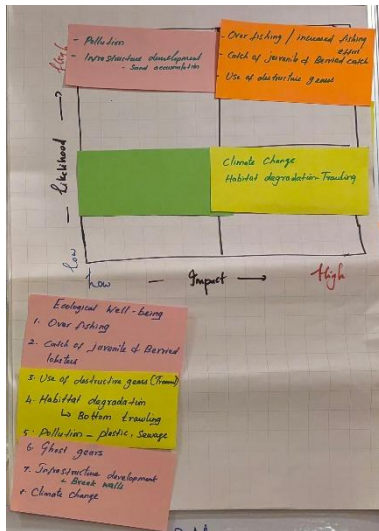 High
- Pollution
- Infrastructure development
- Sand accumulation
- Over fishing / increased fishing
effort
- Catch of juvenile & Berried catch
- Use of destructive gears
Likelihood
Climate Change
Habitat degradation - Trawling
Low
Low — Impact → High
Ecological Well-being
1. Over fishing
2. Catch of juvenile & Berried
lobsters
3. Use of destructive gears
4. Habitat degradation
↳ Bottom trawling
5. Pollution - plastic, Sewage
6. Ghost gears
7. Infrastructure development
Break walls
8. Climate change